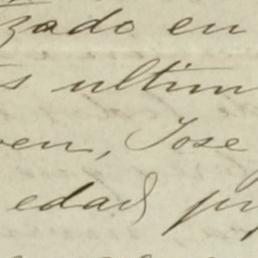 zado en
s ultim
en, Jose
edad